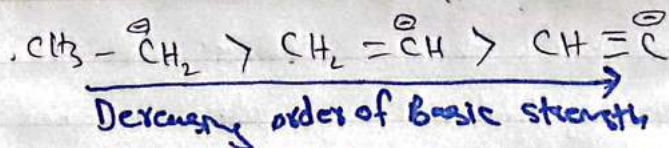 . CH3 - C̊H₂ > CH₂ = C̊H > CH ≡ C̊
Dercuasing order of Basic strength